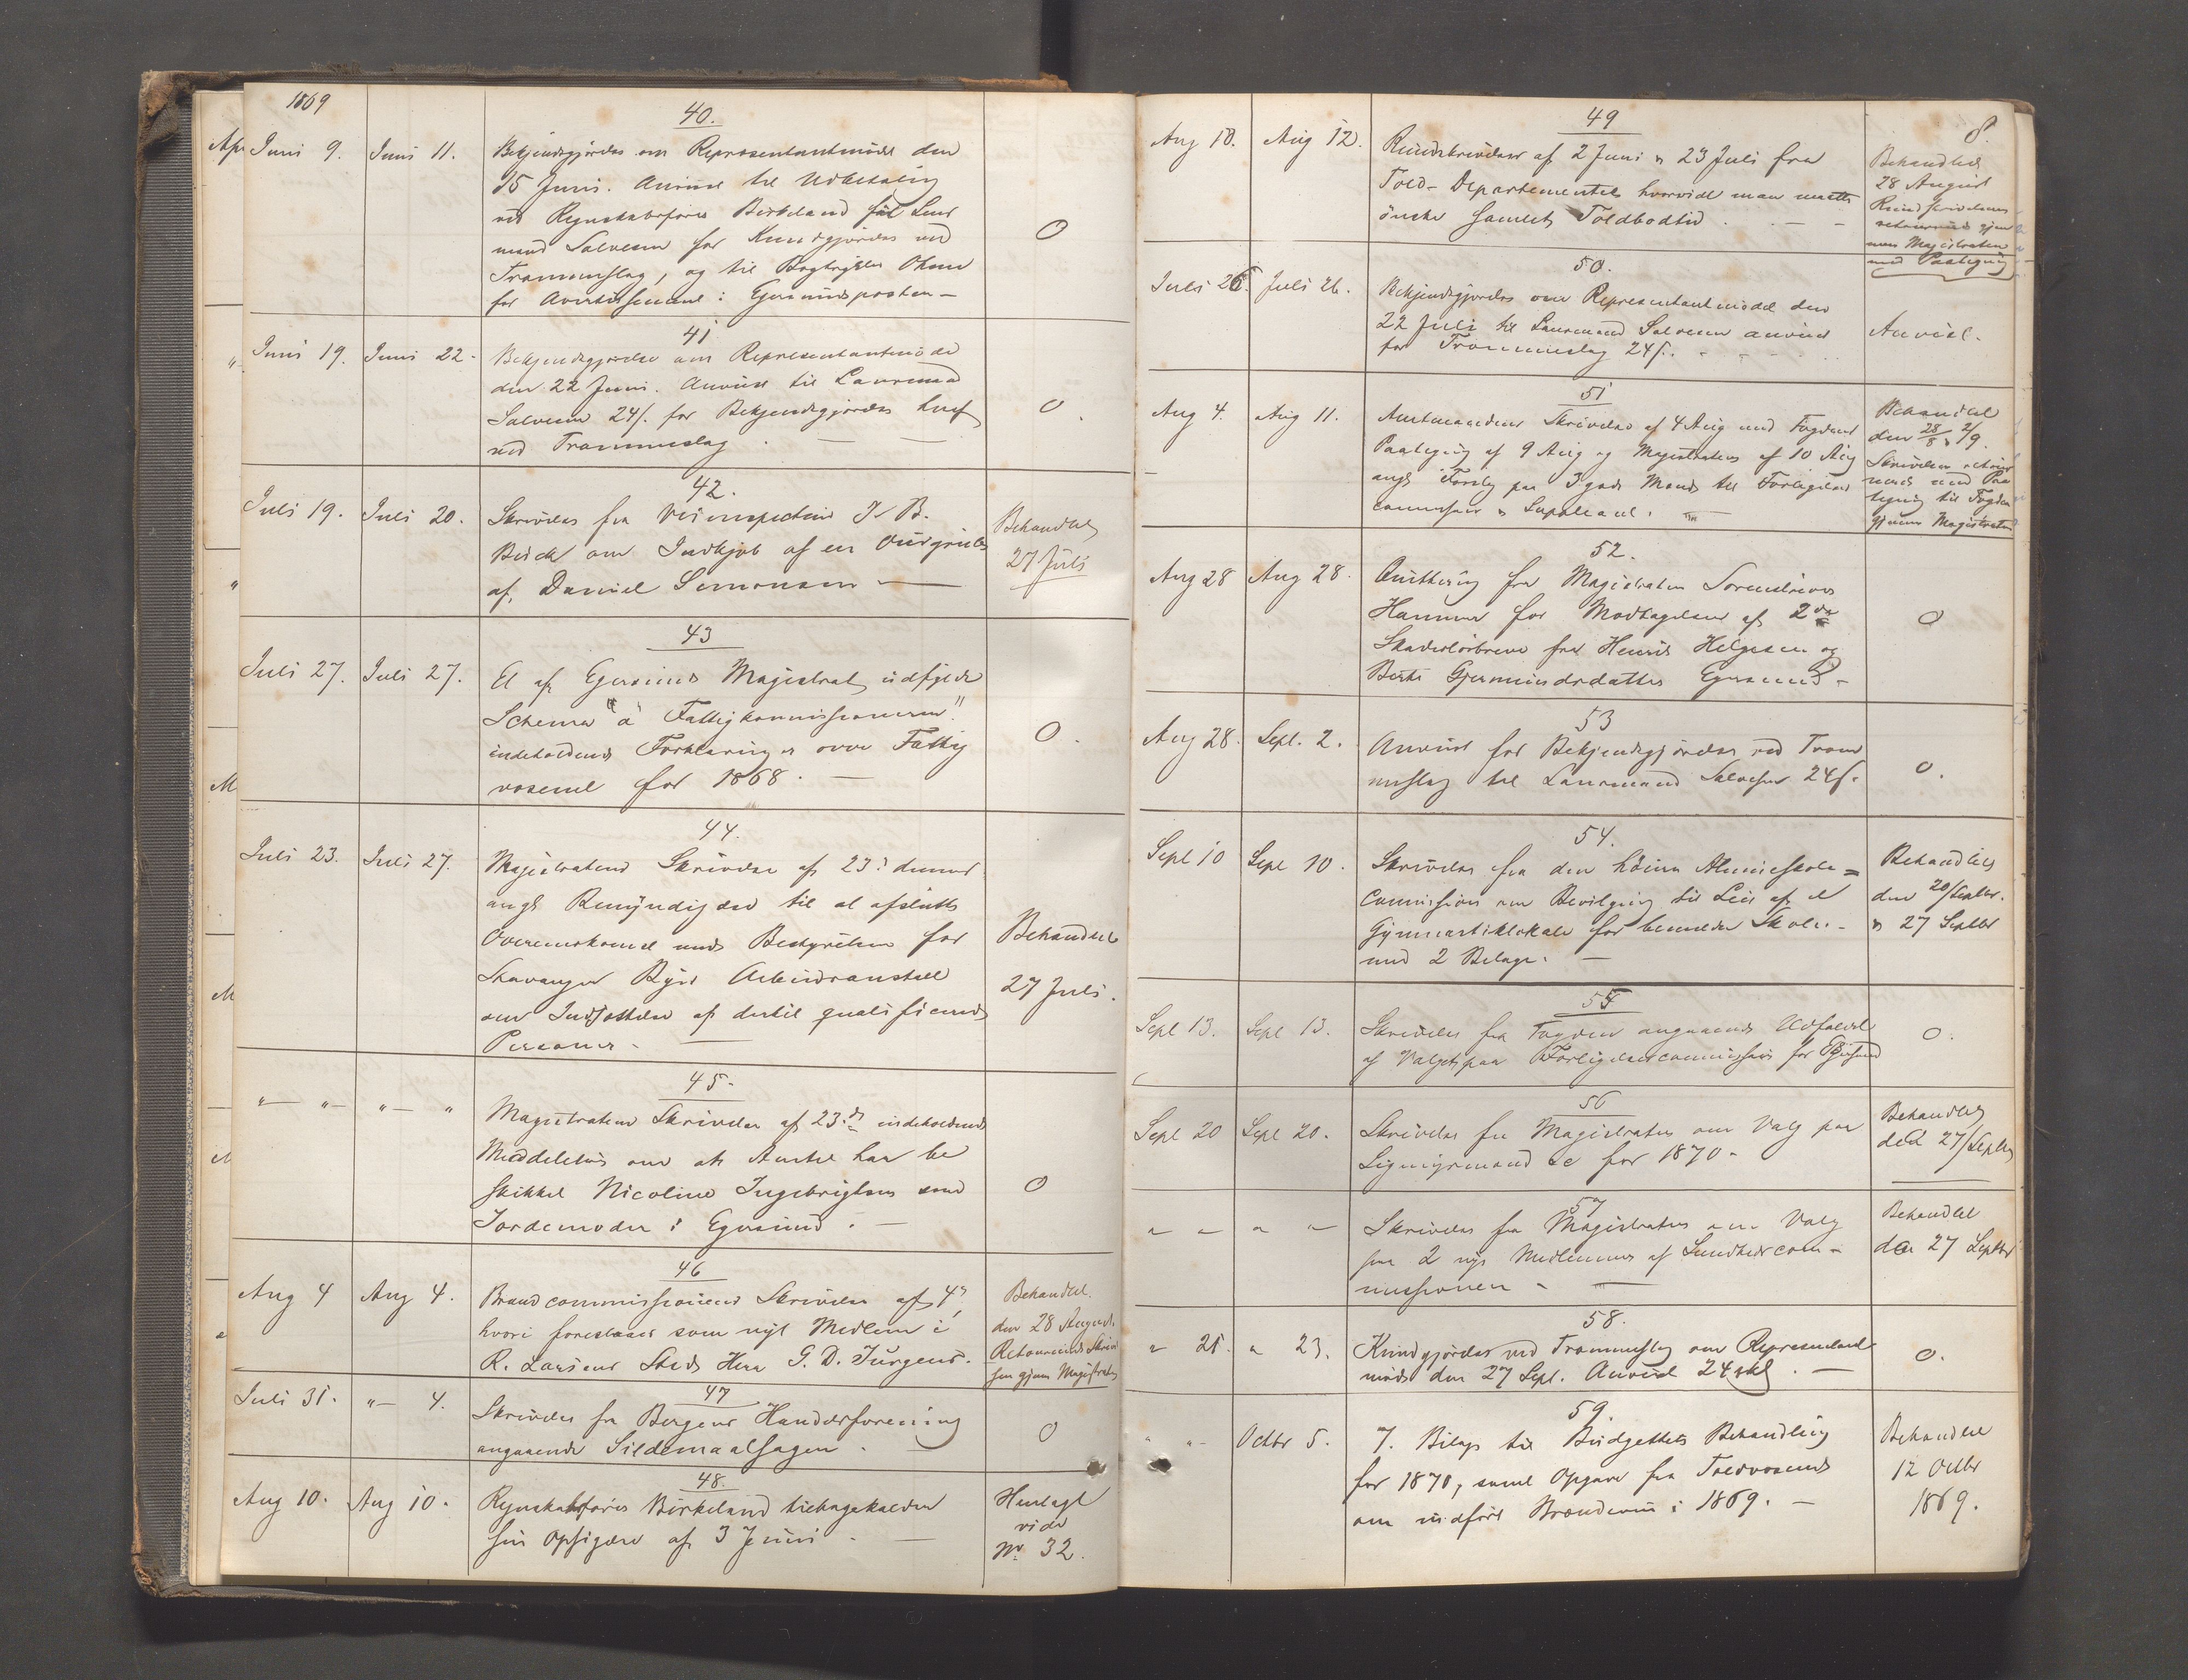 1869
40.
Juni 9. Juni 11. Bekjendtgjørelse om Repræsentantmöde den
15 Juni. Anvist til Udbetaling
ved Regnskabsfører Birkeland til Lens
mand Salvesen for Kundgjörelse ved
Trommeslag, og til Bogtrykker
for Avertissement i Egersundsposten –
O
41
Juni 19. Juni 22. Bekjendtgjörelse om Repræsentantmöde
den 22 Juni. Anvist til Lensmand
Salvesen 24 s. for Bekjendtgjörelse
ved Trommeslag . –
O.
42.
Juli 19. Juli 20. Skrivelse fra Veiinspecteur J. B.
om Indkjöb af en
af, Daniel Simonsen –
Behandlet
27 Juli
43
Juli 27. Juli 27. Et af Egersunds Magistrat udfyldt
Schema "a Fattigkommissionerne"
indeholdende Forklaringer over Fattig
væsenet for 1868. –
O.
44.
Juli 23. Juli 27. Magistratens Skrivelse af 23: dennes
angd Bemyndigelse til at afslutte
Overenskomst med Bestyrelsen for
Stavanger Byes Arbeidsanstalt
om Indsættelse af dertil qualificerede
Personer –
Behandlet
27 Juli.
45.
"– "– "– " Magistratens Skrivelse af 23: ds indeholdende
Meddelelse om at Amtet har be
skikket Nicoline Ingebrigtsen som
Jordemoder i Egersund . –
O
46
Aug 4 Aug 4. Brandcommissionens Skrivelse af 4:,
hvori foreslaaes som nyt Medlem i
R. Larsens Sted Herr G. D. Jürgens.
Behandlet.
den 28 August.
Retourneret Skrivel
sen gjen Magistraten
47
Juli 31. "– 4. Skrivelse fra Bergens Handelsforening
angaaende Sildemaalsagen . –
O
48.
Aug 10. Aug 10. Regnskabsfører Birkeland tilbagekalder
sin Opsigelse af 3 Juni . –
Henlagt
vide
No 32.
8.
49
Aug 10. Aug 12. Rundskrivelser af 2 Juni & 23 Juli fra
Told-Departementet hvorvidt man maatte
önske Toldbodtid . . – –
Behandlet
28 August
Rundskrivelsen
retourneret gjen
nem Magistraten
med Paategning
50.
Juli 26. Juli 26. Bekjendtgjörelse om Repræsentantmödet den
22 Juli til Lensmand Salvesen anvist
for Trommeslag 24 s.
Anvist.
51
Aug 4. Aug 11. Amtmandens Skrivelse af 4 Aug med Fogdens
Paategning af 9 Aug og Magistratens af 10 Aug
angd Forslag paa 3 gode Mænd til Forligelses
commissair & Supleant. –
Behandlet
den 28/8 & 2/9.
Skrivelsen retour
neret med Paa
tegning til Fogden
gjennem Magistraten
52.
Aug 28 Aug 28. Quittering fra Magistraten Sorenskriver
Hammer for Modtagelsen af 2de
Skadeslösbreve fra Henrik Helgesen og
Berte Gjermundsdatter Egersund –
O
53
Aug 28. Sept. 2. Anvist for Bekjendtgjörelse ved Trom
meslag til Lensmand Salvesen 24 s.
O.
54.
Sept 10 Sept 10. Skrivelse fra den höiere Almueskole=
Commission om Bevilgning til Leie af et
Gymnastiklokale for bemeldte Skole. –
med 2 Bilage. –
Behandlet
den 20/Septbr.
& 27 Septbr
55
Sept 13. Sept 13. Skrivelse fra Fogden angaaende Udfaldet
af Valget paa Forligelsescommissair for
O.
56
Sept 20 Sept 20. Skrivelse fra Magistraten om Valg paa
Ligningsmænd &c for 1870 –
Behandlet
den 27/Septbr
57
" " " " Skrivelse fra Magistraten om Valg
paa 2 nye Medlemmer af Sundhedscom-
missionen – –
Behandlet
den 27 Septbr
58.
" 21. " 23. Kundgjörelse ved Trommeslag om Repræsentant
möde den 27 Sept. Anvist 24 skl . –
O.
59.
" "– Octbr 5. 7. Bilag til Budgettets Behandling
for 1870, samt Opgave fra Toldvæsenet
om indfört Brændeviin i 1869. –
Behandlet
12 Octbr
1869.